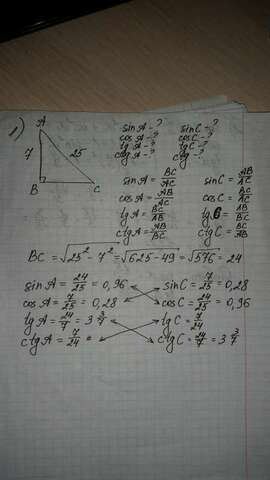 1)
A
7
25
B
C
sinA - ? sinC - ?
cosA - ? cosC - ?
tgA - ? tgC - ?
ctgA - ? ctg - ?
sinA = BC/AC sinC = AB/AC
cosA = AB/AC cosC = BC/AC
tgA = BC/AB tgC = AB/BC
ctgA = AB/BC ctgC = BC/AB
BC = √25² - 7² = √625-49 = √576 = 24
sinA = 24/25 = 0,96 sinC = 7/25 = 0,28
cosA = 7/25 = 0,28 cosC = 24/25 = 0,96
tgA = 24/7 = 3 3/7 tgC = 7/24
ctgA = 7/24 = ctgC = 24/7 = 3 3/7